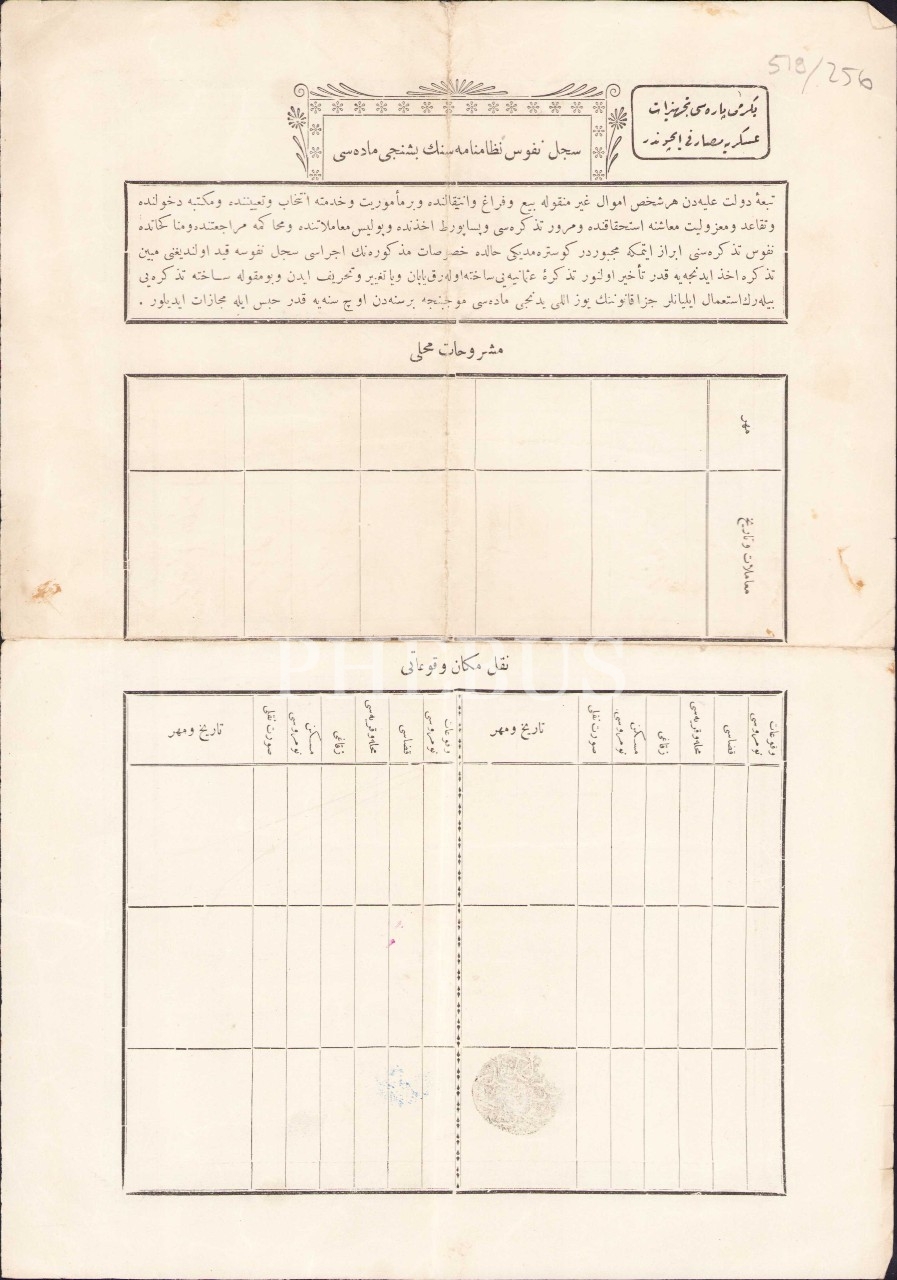 519/256
یكرمی پاره‌سی تجهیزات
عسكریه مصارفی ایچوندر
سجل نفوس نظامنامه سنك بشنجی ماده سی
تبعهٔ دولت علیه‌دن هر شخص اموال غیر منقوله بیع و فراغ وانتقالنده وبر مأموریت وخدمته انتخاب وتعییننده ومكتبه دخولنده
وتقاعد ومعزولیت معاشنه استحقاقنده ومرور تذكره‌سی وپساپورط اخذنده وپولیس معاملاتنده ومحاكمه مراجعتنده ومناكحاتده
نفوس تذكره‌سنی ابراز ایتمكه مجبوردر كوستره‌مدیكی حالده خصوصات مذكوره‌نك اجراسی سجل نفوسه قید اولندیغنی مبین
تذكره اخذ ایدنجه‌یه قدر تأخیر اولنور تذكرهٔ عثمانیه‌یی ساخته اوله‌رق یاپان ویا تغییر وتحریف ایدن وبومقوله ساخته تذكره‌یی
بیله‌رك استعمال ایلیانلر جزا قانوننك یوز اللی یدنجی ماده‌سی موجبنجه برسنه‌دن اوچ سنه‌یه قدر حبس ایله مجازات ایدیلور .
مشروحات محلی
مهر
معاملات و تاریخ
نقل مكان وقوعاتی
وقوعات نومروسی قضاسی محله وقریه‌سی زقاغی مسكن نومروسی صورت نقلی تاریخ ومهر
وقوعات نومروسی قضاسی محله وقریه‌سی زقاغی مسكن نومروسی صورت نقلی تاریخ ومهر
PHEBUS